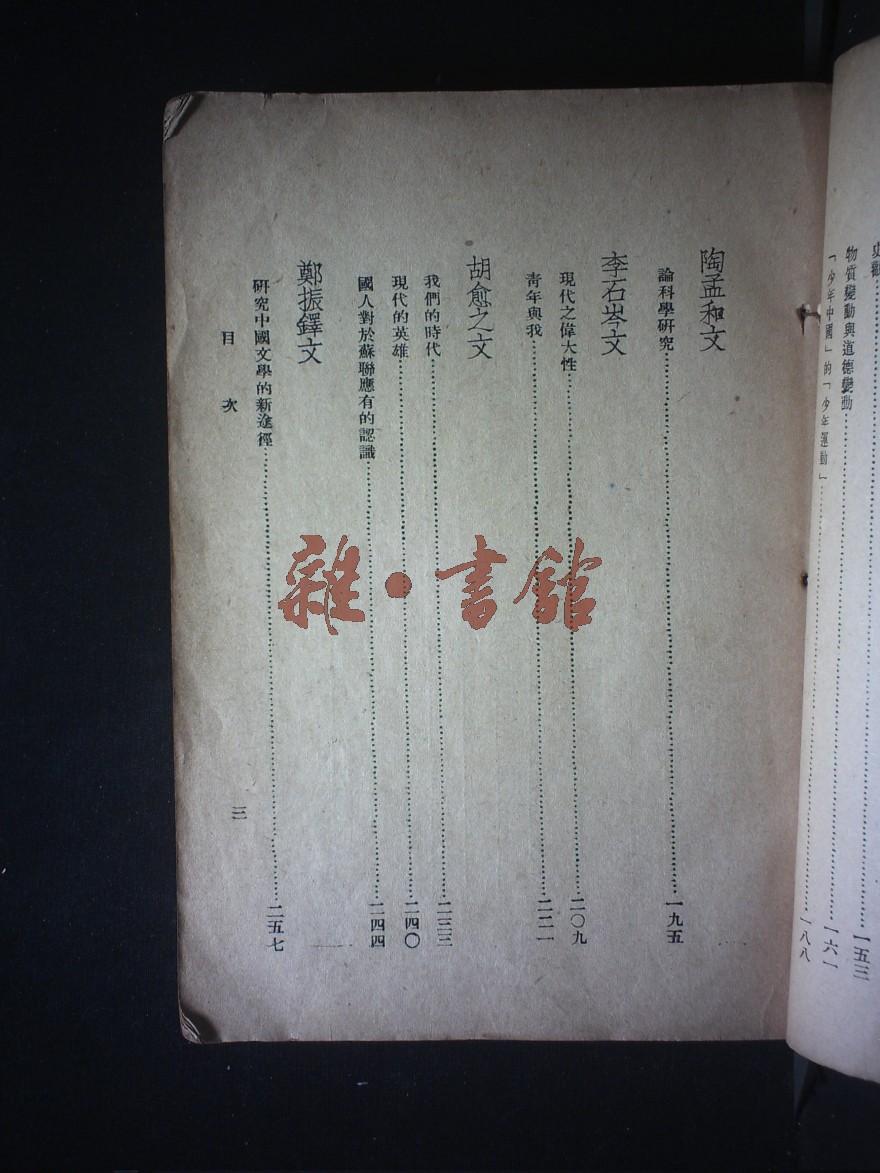 史觀
一五三
物質變動與道德變動
一六一
「少年中國」的「少年運動」
一八八
陶孟和文
論科學研究
一九五
李石岑文
現代之偉大性
二〇九
青年與我
二二一
胡愈之文
我們的時代
二三三
現代的英雄
二四〇
國人對於蘇聯應有的認識
二四四
鄭振鐸文
研究中國文學的新途徑
二五七
目次
三
雜·書館